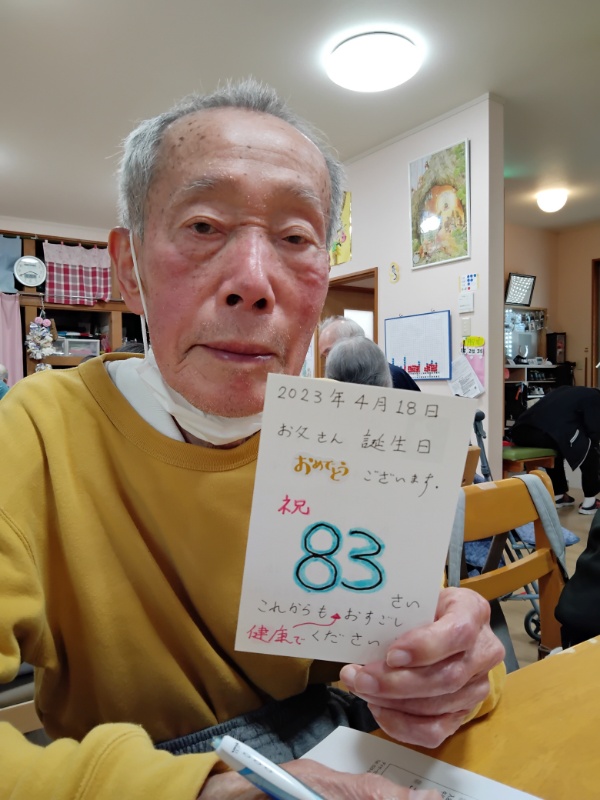 2023年4月18日
お父さん 誕生日
おめでとう ございます。
祝
83
さい
これからも おすごし
健康で ください